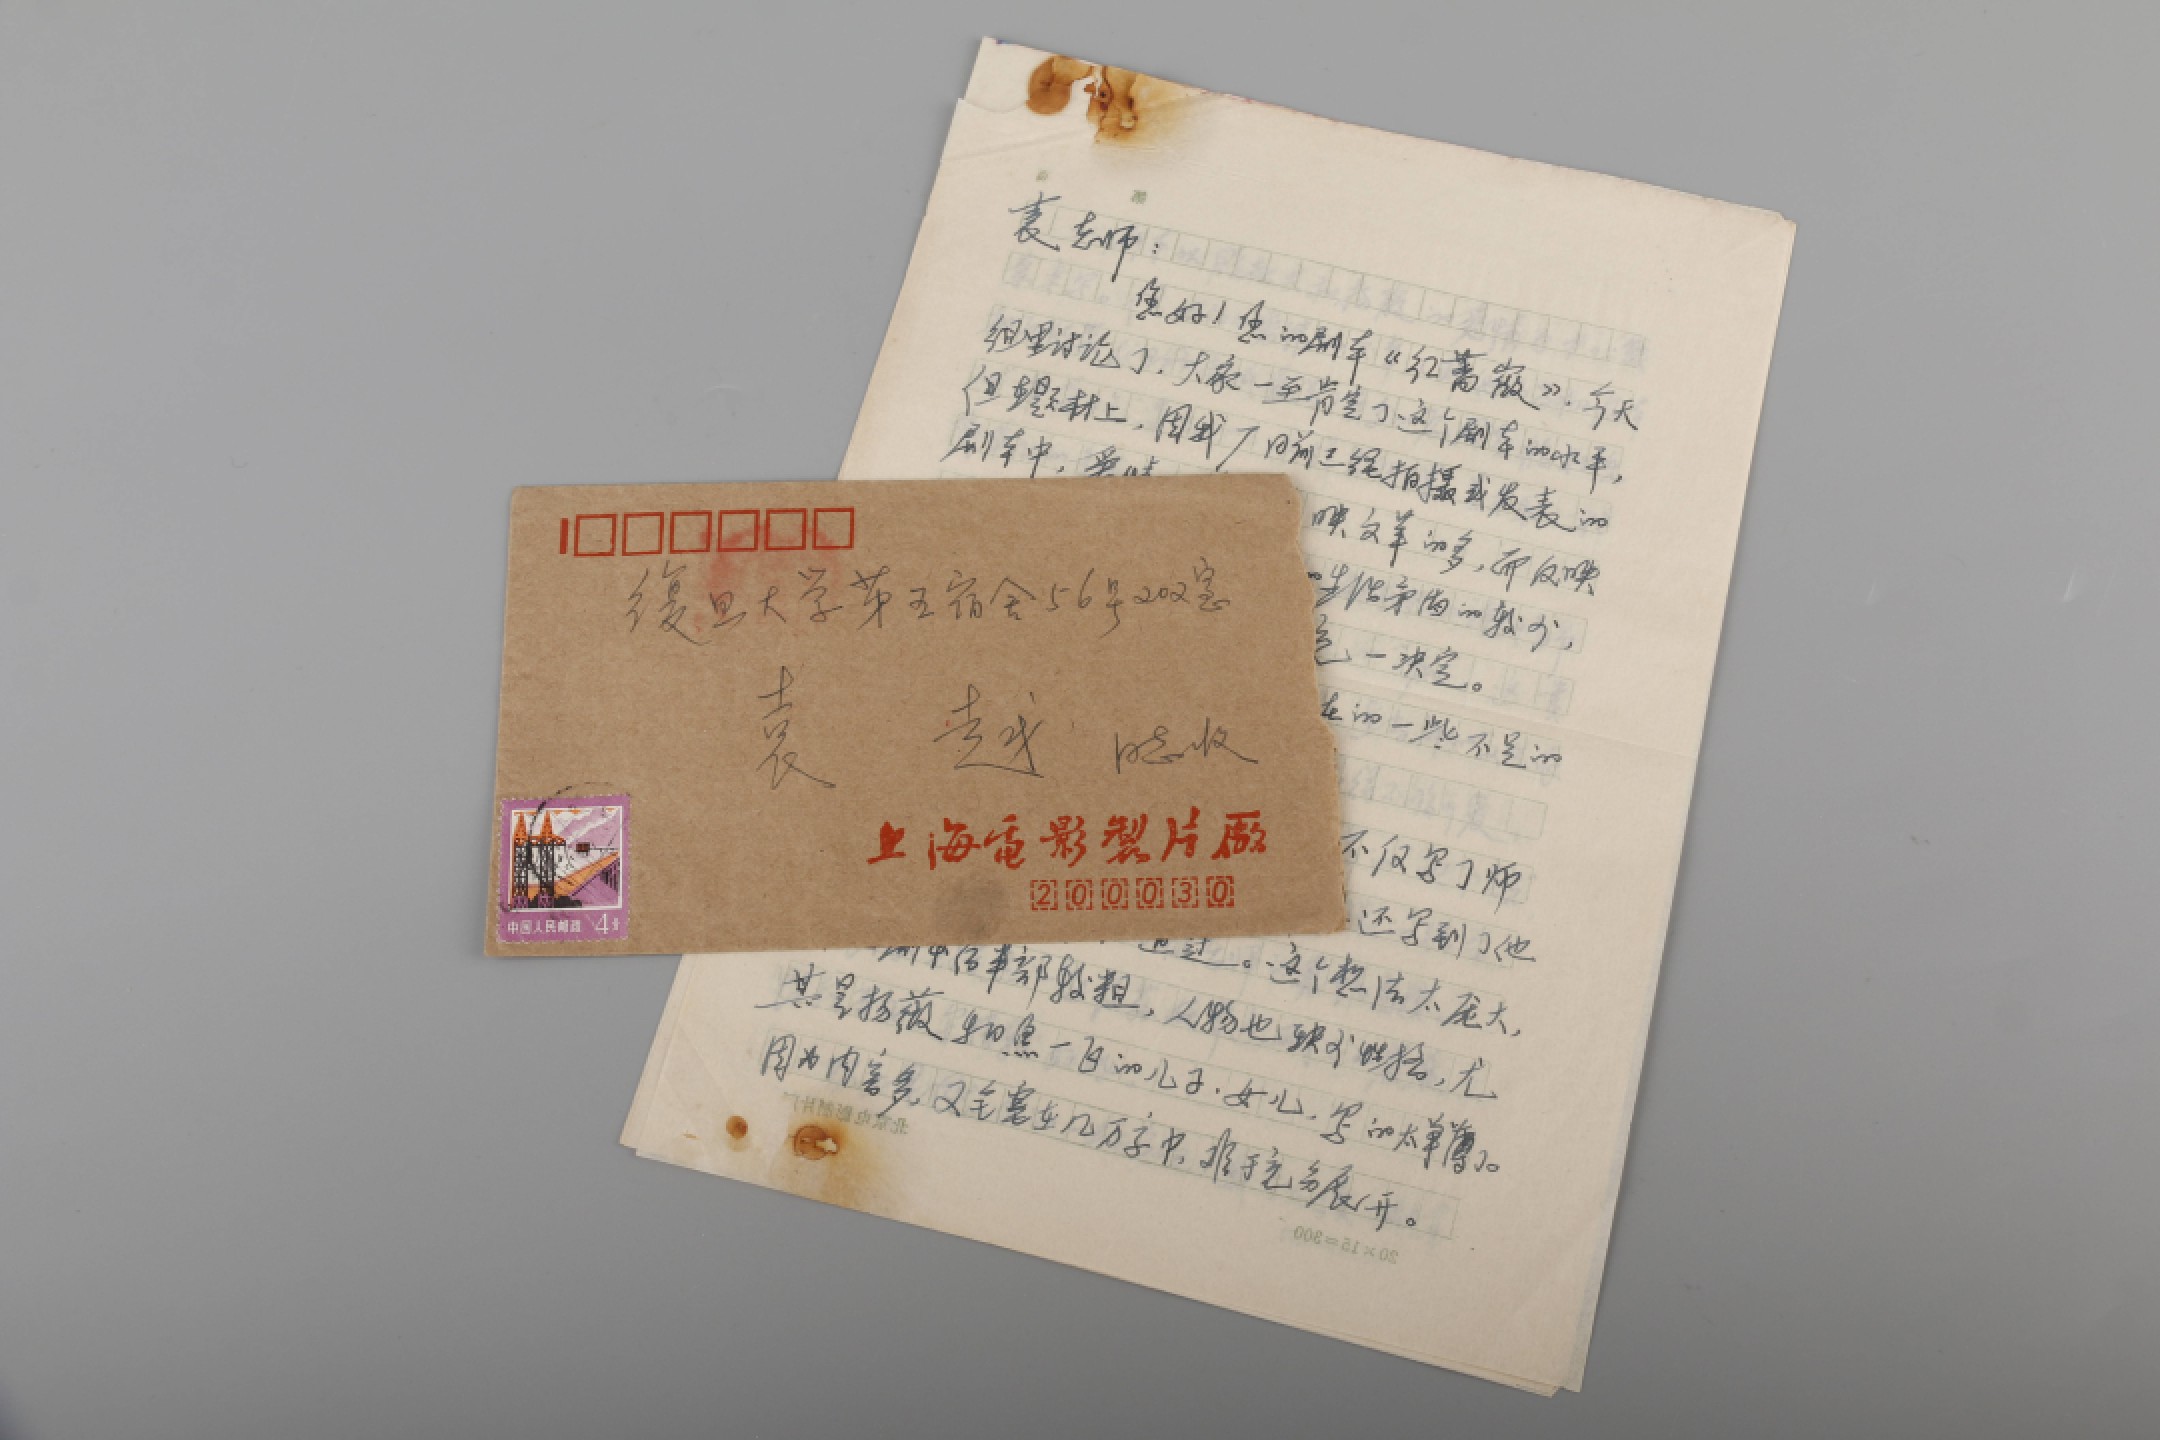 復旦大学第五宿舍56号202室
袁 越 同志收
上海電影製片廠
200030
中国人民邮政 4分
袁老师：
您好！您的剧本《红蔷薇》，今天
组里讨论了，大家一至肯定了这个剧本的水平，
但在题材上，因我厂目前已经拍摄或发表的
剧本中，爱情
映文革的多，而反映
生活矛盾的较少，
一决定。
在的一些不足的
不仅写了师
还写到了他
这个想法太庞大，
剧中后半部较粗，人物也缺少性格，尤
其是杨薇和焦一飞的儿子、女儿，写的太单薄了。
因为内容多，又全塞在几万字中，难于充分展开。
北京电影制片厂
20×15=300